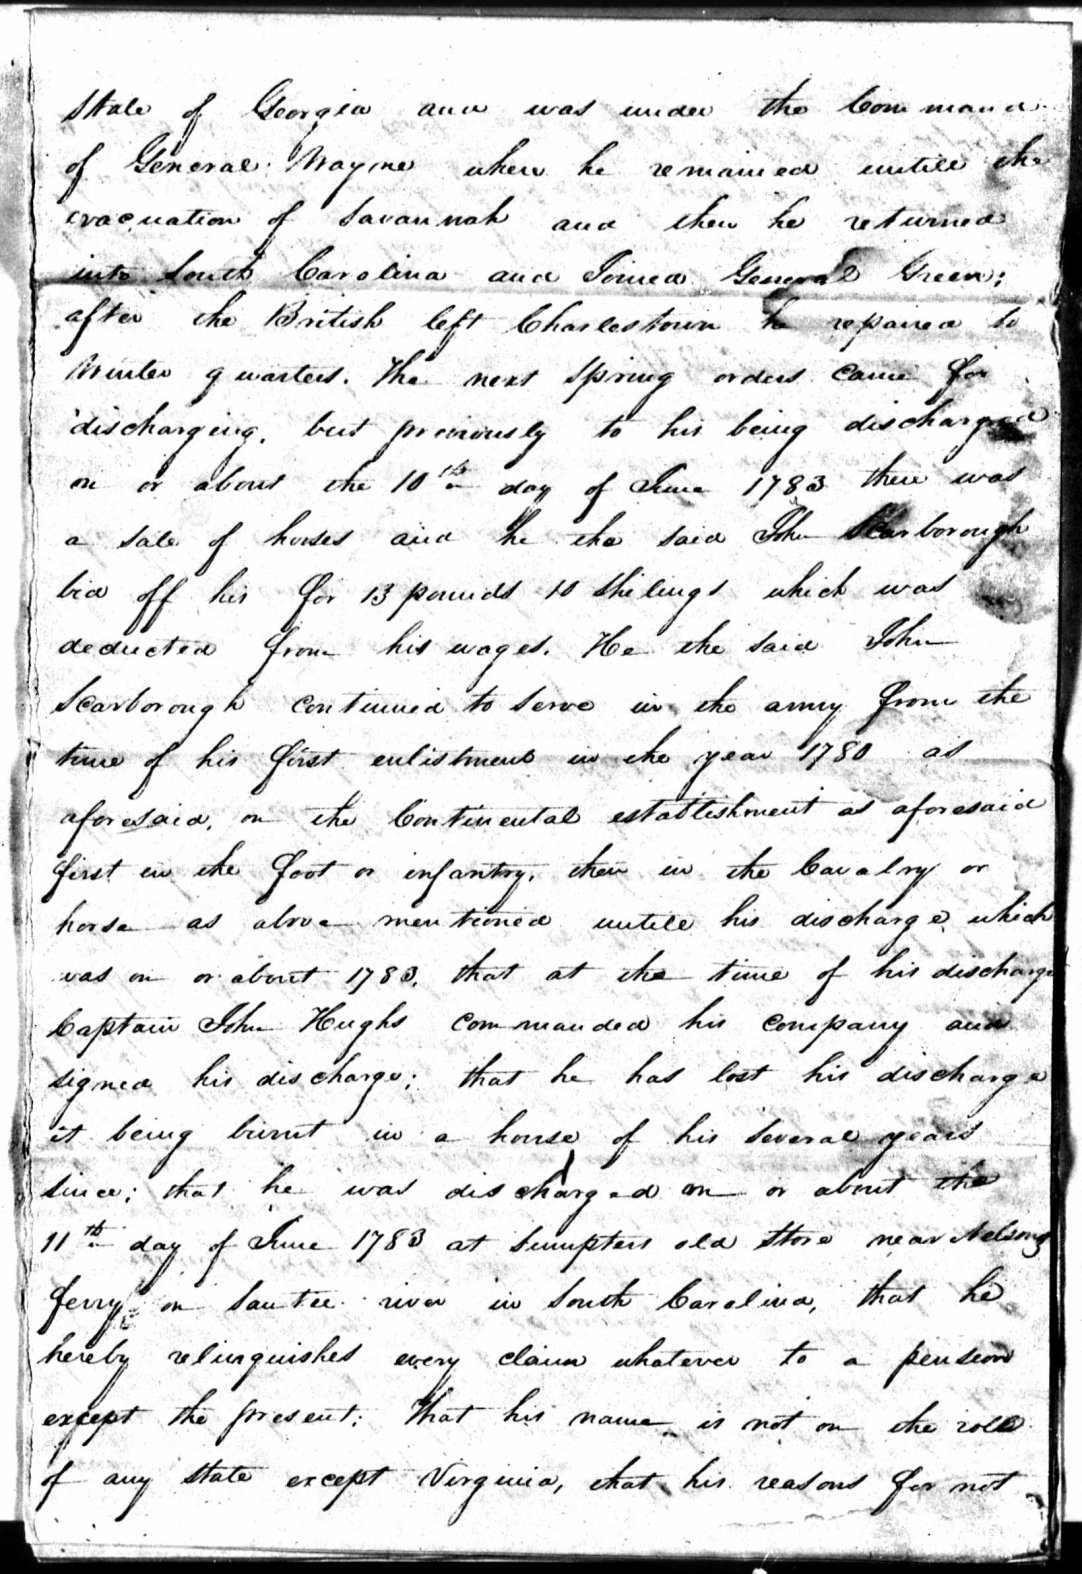 State of Georgia and was under the Command
of General Wayne where he remained untill the
evacuation of Savannah and then he returned
into South Carolina and Joined General Green;
after the British left Charlestown he repaired to
Winter quarters. The next Spring orders came for
discharging, but previously to his being discharged
on or about the 10th day of June 1783 there was
a sale of horses and he the said John Scarborough
bid off his for 13 pounds 10 Shilings which was
deducted from his wages. He the said John
Scarborough continued to serve in the army from the
time of his first enlistment in the year 1780 as
aforesaid, on the Continental establishment as aforesaid
first in the foot or infantry, then in the Cavalry or
horse as above mentioned untill his discharge which
was on or about 1783, that at the time of his discharge
Captain John Hughs commanded his company and
signed his discharge; that he has lost his discharge
it being burnt in a house of his several years
since; that he was discharged on or about the
11th day of June 1783 at Sumpters old Store near Nelsons
ferry on Santee river in South Carolina, that he
hereby relinguishes every claim whatever to a pension
except the present; that his name is not on the roll
of any State except Virginia, that his reasons for not